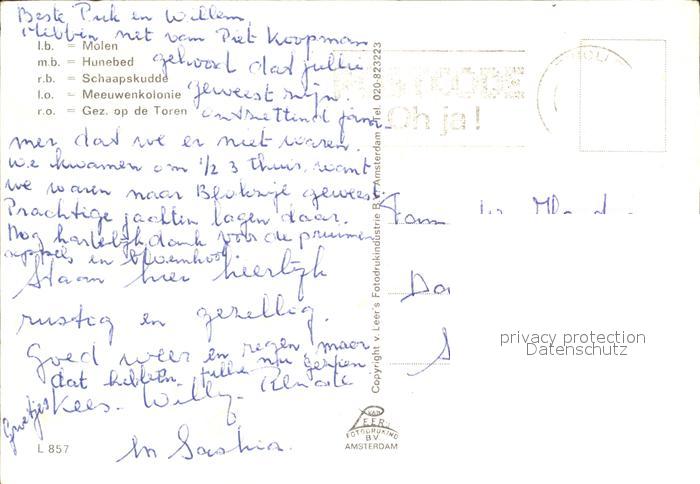 Beste Puk en Willem,
Hebben net van Piet Koopman
l.b. = Molen
m.b. = Hunebed
gehoord dat jullie
r.b. = Schaapskudde
l.o. = Meeuwenkolonie
geweest zijn.
r.o. = Gez. op de Toren
ontzettend jam-
mer dat we er niet waren.
We kwamen om 1/2 3 thuis, want
we waren naar Blokzijl geweest.
Prachtige jachten lagen daar.
Nog hartelijk dank voor de pruimen
appels en bloemkool
Staan hier heerlijk
rustig en gezellig.
Goed weer en regen, maar
dat hebben jullie nu gezien.
Groetjes Kees. Willy.
en Saskia.
L 857
Copyright v. Leer's Fotodrukindustrie B.V. Amsterdam - Tel. 020-823223
POSTCODE
Oh ja!
Fam
VAN LEER'S
FOTODRUKIND
B.V.
AMSTERDAM
privacy protection
Datenschutz